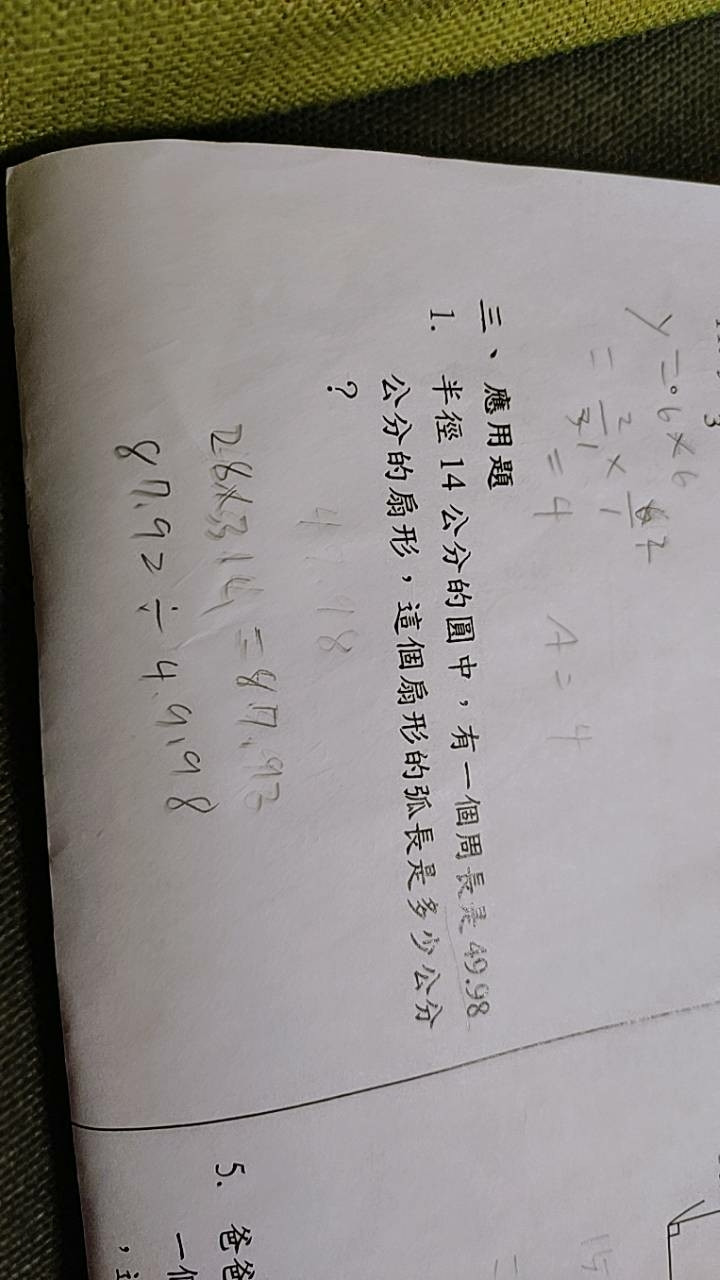 3
y = 0.6 × 6
= 2/3 × 6/1
= 4
A = 4
三、應用題
1. 半徑 14 公分的圓中，有一個周長是 49.98
公分的扇形，這個扇形的弧長是多少公分
？
28×3.14=87.92
87.92÷49.98
5. 爸爸
一個